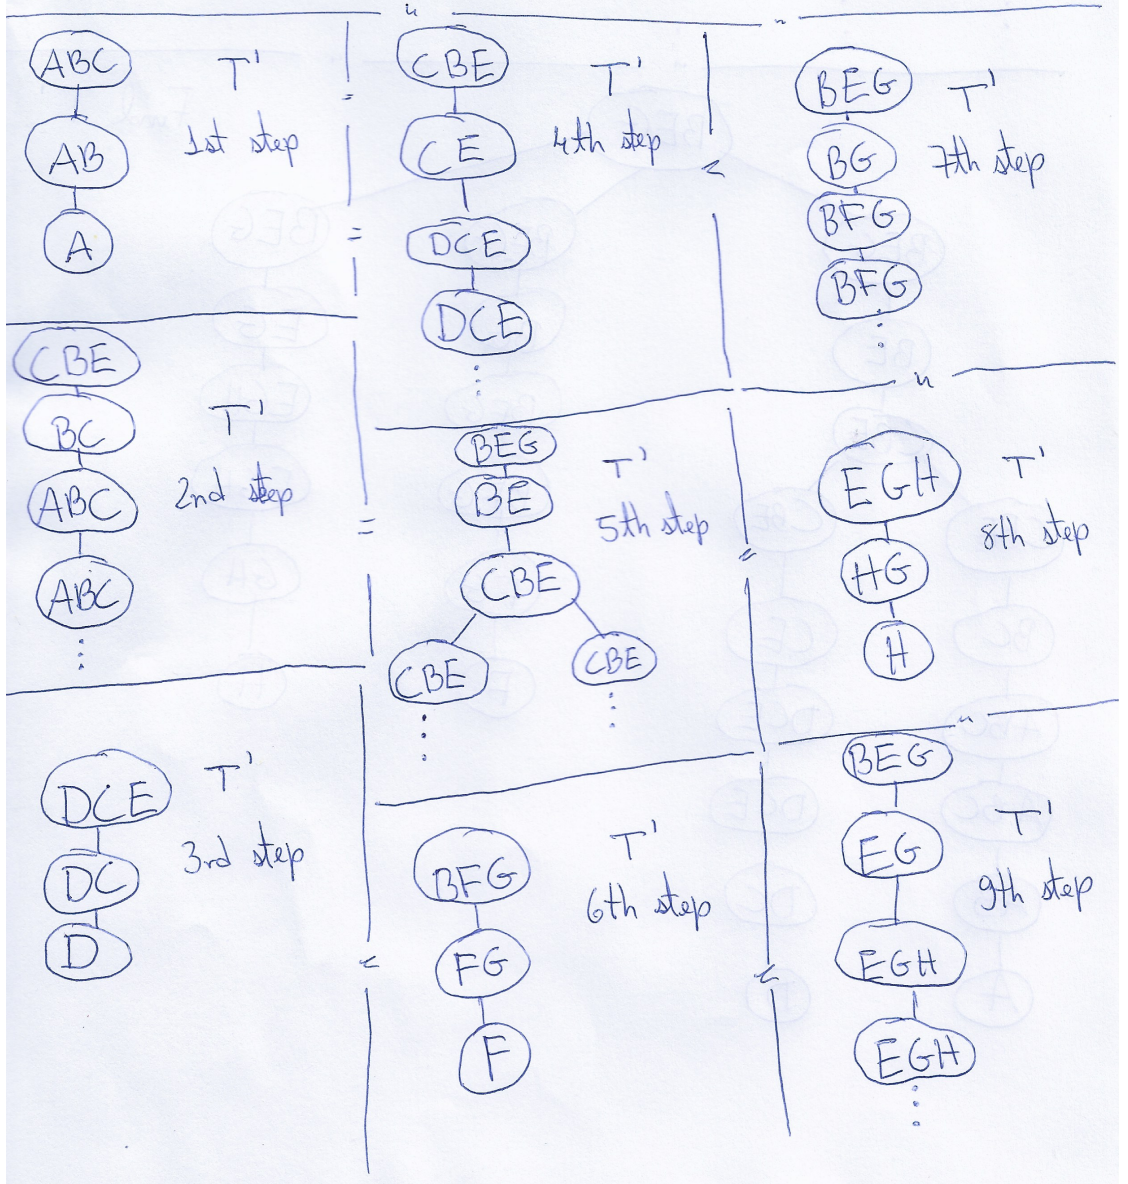 ABC
T'
AB
1st step
A
CBE
BC
T'
ABC
2nd step
ABC
DCE
T'
DC
3rd step
D
CBE
T'
CE
4th step
DCE
DCE
BEG
T'
BE
5th step
CBE
CBE
CBE
BFG
T'
6th step
FG
F
BEG
T'
BG
7th step
BFG
BFG
EGH
T'
8th step
HG
H
BEG
T'
EG
9th step
EGH
EGH